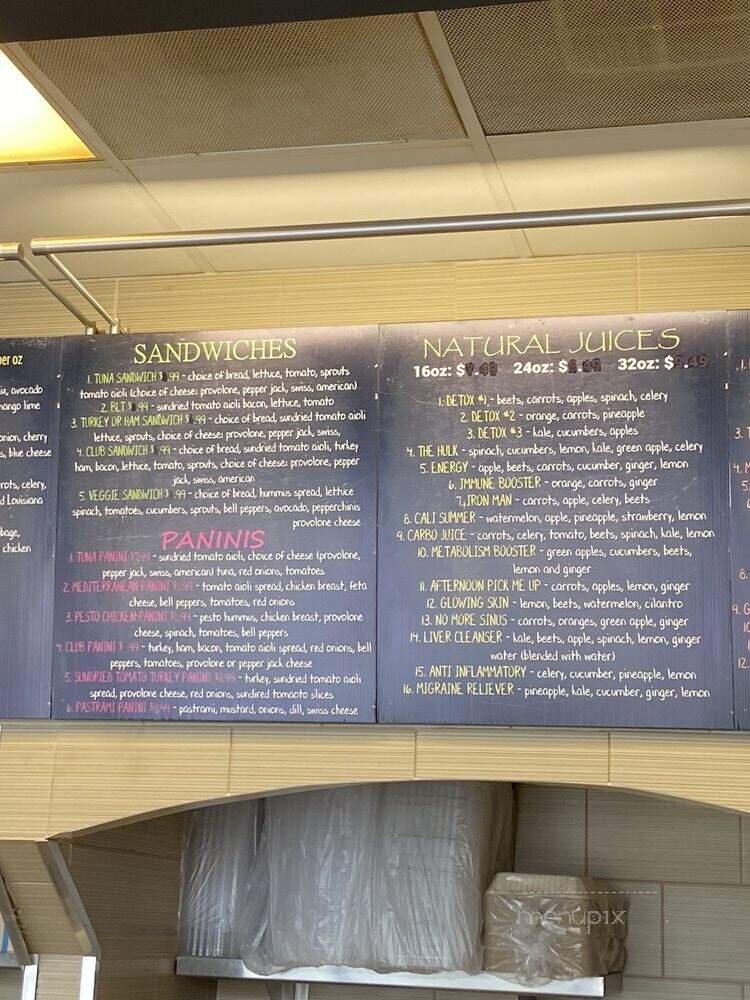 per oz
avocado
mango lime
onion, cherry
s, blue cheese
rots, celery,
d Louisiana
bage,
chicken
SANDWICHES
1. TUNA SANDWICH $ .99 - choice of bread, lettuce, tomato, sprouts
tomato aioli (choice of cheese: provolone, pepper jack, swiss, american)
2. BLT $ .99 - sundried tomato aioli bacon, lettuce, tomato
3. TURKEY OR HAM SANDWICH $ .99 - choice of bread, sundried tomato aioli
lettuce, sprouts, choice of cheese: provolone, pepper jack, swiss,
4. CLUB SANDWICH $ .99 - choice of bread, sundried tomato aioli, turkey
ham, bacon, lettuce, tomato, sprouts, choice of cheese: provolone, pepper
jack, swiss, american
5. VEGGIE SANDWICH $ .99 - choice of bread, hummus spread, lettuce
spinach, tomatoes, cucumbers, sprouts, bell peppers, avocado, pepperchinis
provolone cheese
PANINIS
1. TUNA PANINI - sundried tomato aioli, choice of cheese (provolone,
pepper jack, swiss, american) tuna, red onions, tomatoes
2. MEDITERRANEAN PANINI - tomato aioli spread, chicken breast, feta
cheese, bell peppers, tomatoes, red onions
3. PESTO CHICKEN PANINI - pesto hummus, chicken breast, provolone
cheese, spinach, tomatoes, bell peppers
4. CLUB PANINI $ .99 - turkey, ham, bacon, tomato aioli spread, red onions, bell
peppers, tomatoes, provolone or pepper jack cheese
5. SUNDRIED TOMATO TURKEY PANINI - turkey, sundried tomato aioli
spread, provolone cheese, red onions, sundired tomaoto slices
6. PASTRAMI PANINI - pastrami, mustard, onions, dill, swiss cheese
NATURAL JUICES
16oz: $ 24oz: $ 32oz: $ .49
1. DETOX #1 - beets, carrots, apples, spinach, celery
2. DETOX #2 - orange, carrots, pineapple
3. DETOX #3 - kale, cucumbers, apples
4. THE HULK - spinach, cucumbers, lemon, kale, green apple, celery
5. ENERGY - apple, beets, carrots, cucumber, ginger, lemon
6. IMMUNE BOOSTER - orange, carrots, ginger
7. IRON MAN - carrots, apple, celery, beets
8. CALI SUMMER - watermelon, apple, pineapple, strawberry, lemon
9. CARBO JUICE - carrots, celery, tomato, beets, spinach, kale, lemon
10. METABOLISM BOOSTER - green apples, cucumbers, beets,
lemon and ginger
11. AFTERNOON PICK ME UP - carrots, apples, lemon, ginger
12. GLOWING SKIN - lemon, beets, watermelon, cilantro
13. NO MORE SINUS - carrots, oranges, green apple, ginger
14. LIVER CLEANSER - kale, beets, apple, spinach, lemon, ginger
water (blended with water)
15. ANTI INFLAMMATORY - celery, cucumber, pineapple, lemon
16. MIGRAINE RELIEVER - pineapple, kale, cucumber, ginger, lemon
menupix